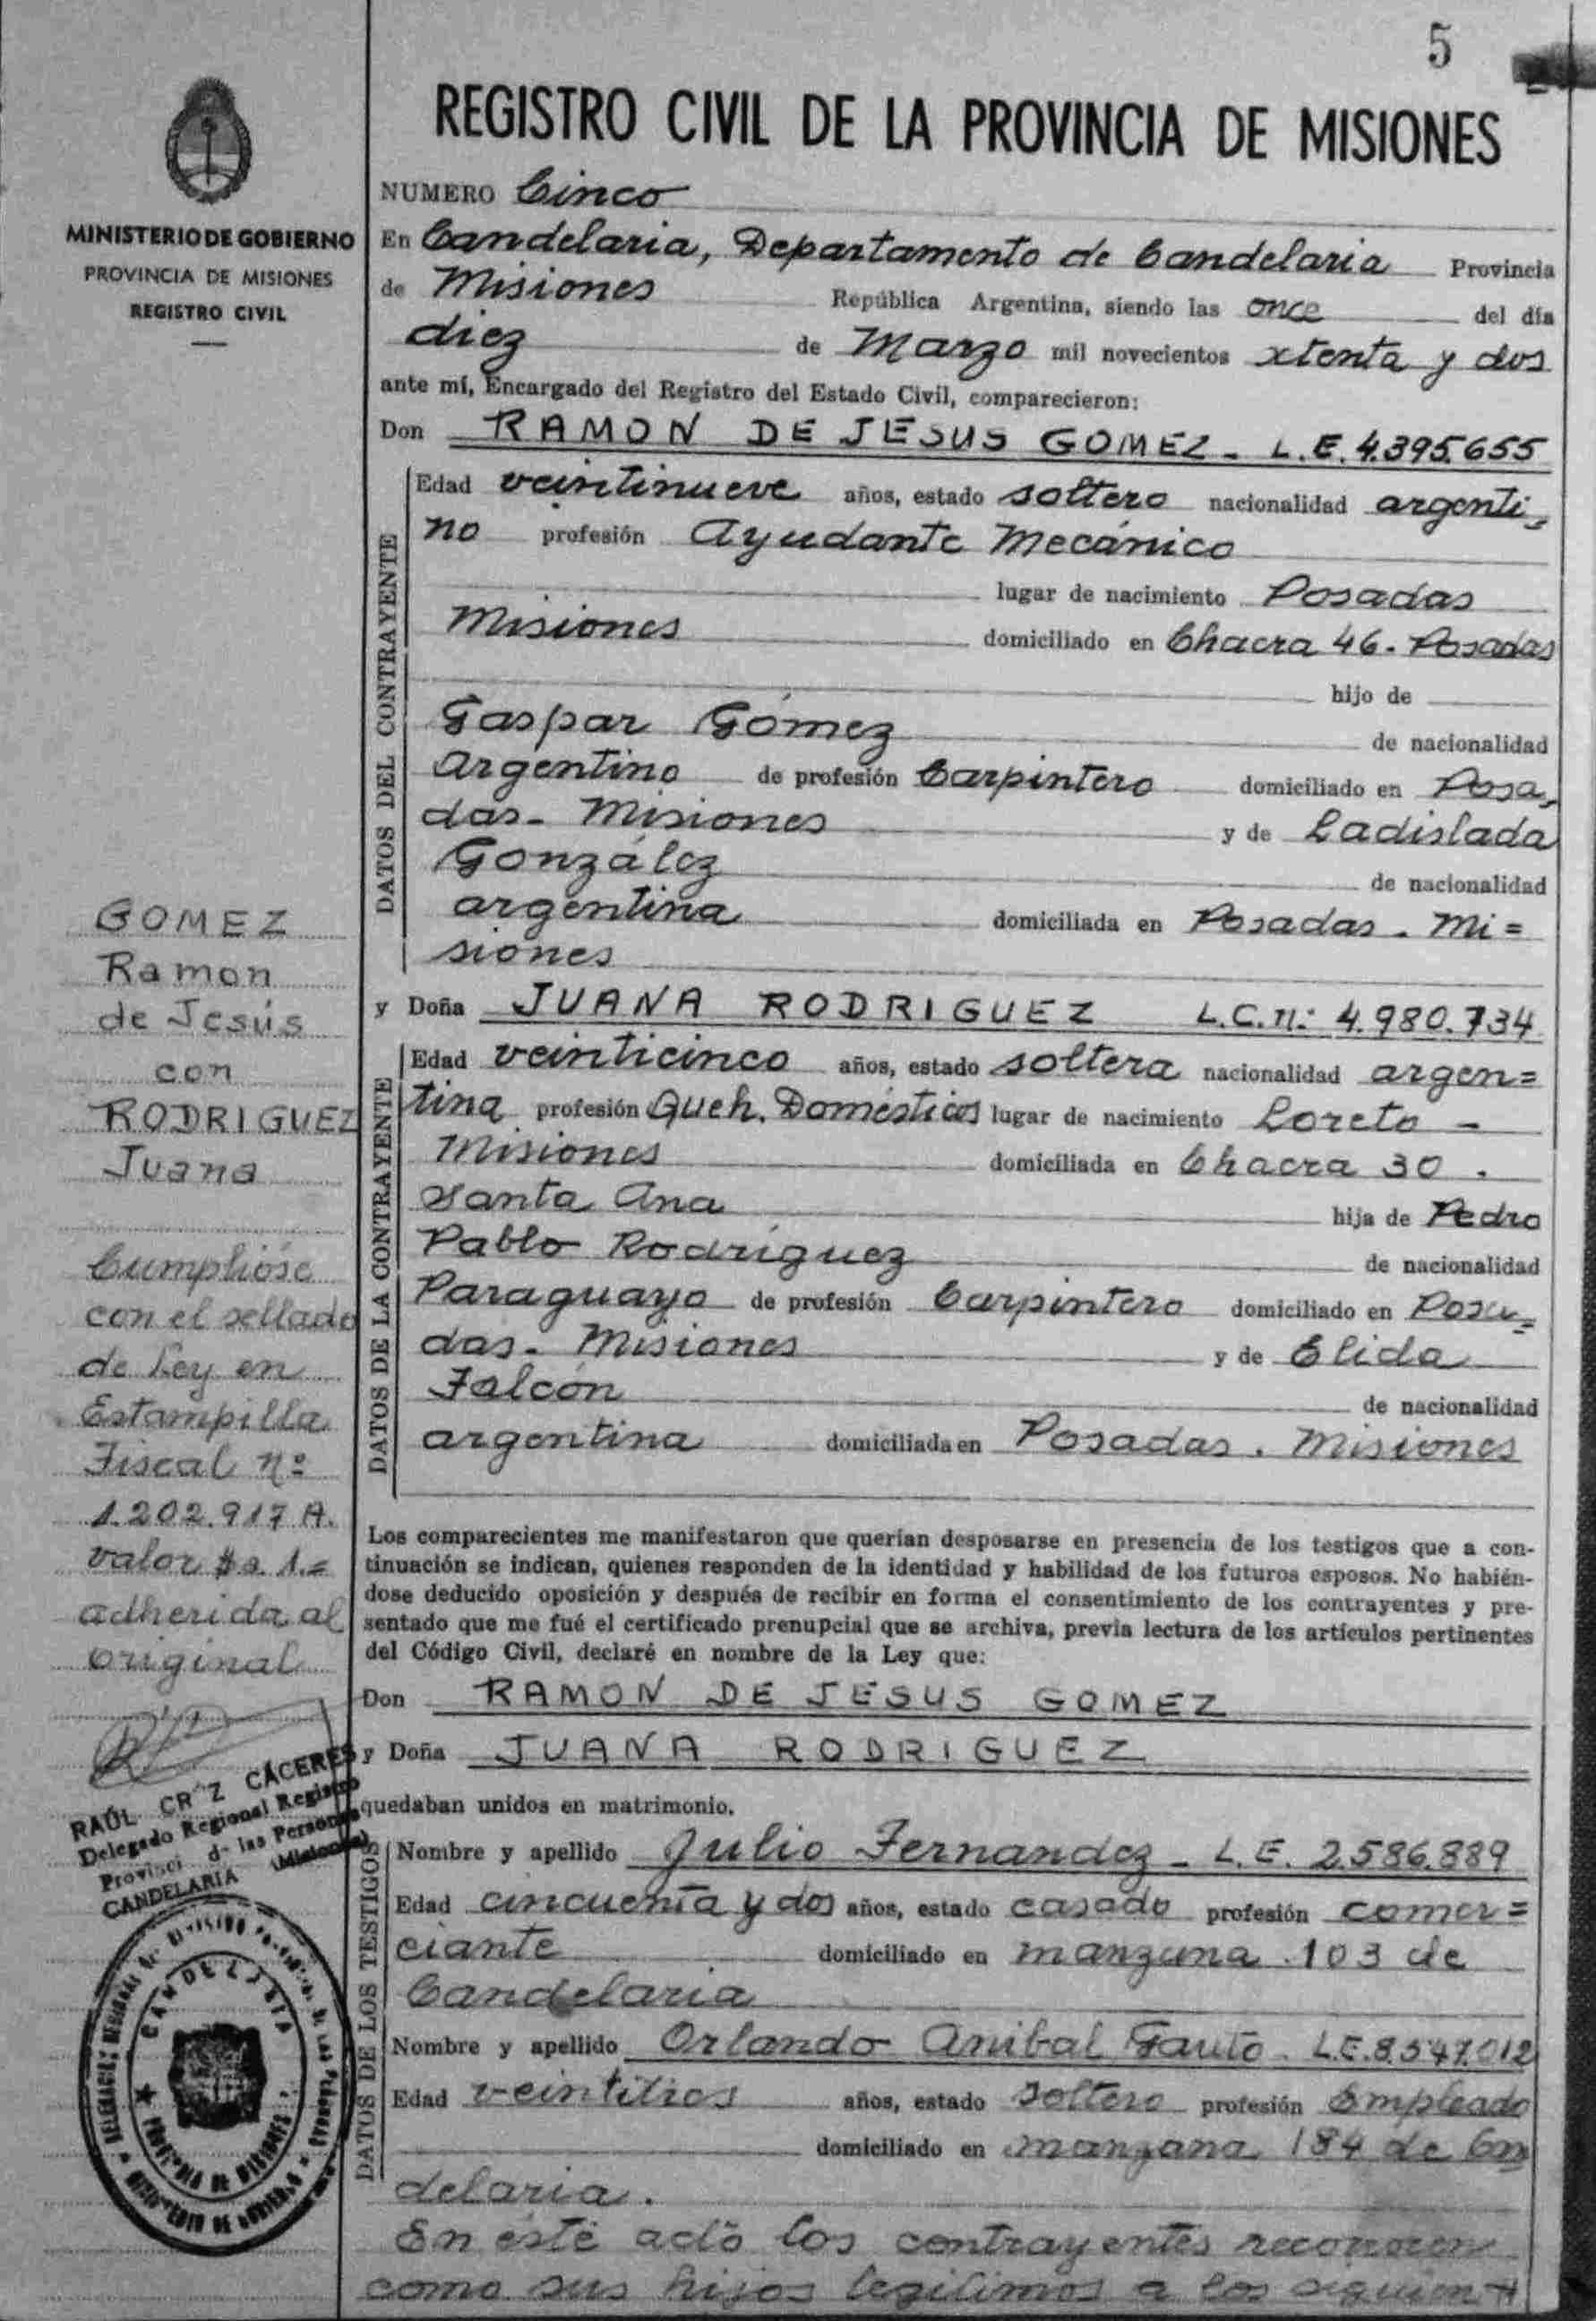 5
REGISTRO CIVIL DE LA PROVINCIA DE MISIONES
MINISTERIO DE GOBIERNO
PROVINCIA DE MISIONES
REGISTRO CIVIL
NUMERO Cinco
En Candelaria, Departamento de Candelaria Provincia
de Misiones República Argentina, siendo las once del día
diez de Marzo mil novecientos setenta y dos
ante mí, Encargado del Registro del Estado Civil, comparecieron:
Don RAMON DE JESUS GOMEZ - L.E. 4.395.655
DATOS DEL CONTRAYENTE
Edad veintinueve años, estado soltero nacionalidad argenti=
no profesión Ayudante Mecánico
lugar de nacimiento Posadas
Misiones domiciliado en Chacra 46. Posadas
hijo de
Gaspar Gómez de nacionalidad
Argentino de profesión Carpintero domiciliado en Posa=
das. Misiones y de Ladislada
González de nacionalidad
argentina domiciliada en Posadas. Mi=
siones
y Doña JUANA RODRIGUEZ L.C.n: 4.980.734
DATOS DE LA CONTRAYENTE
Edad veinticinco años, estado soltera nacionalidad argen=
tina profesión Queh. Domésticos lugar de nacimiento Loreto -
Misiones domiciliada en Chacra 30.
Santa Ana hija de Pedro
Pablo Rodríguez de nacionalidad
Paraguayo de profesión Carpintero domiciliado en Posa=
das. Misiones y de Elida
Falcón de nacionalidad
argentina domiciliada en Posadas. Misiones
Los comparecientes me manifestaron que querían desposarse en presencia de los testigos que a con-
tinuación se indican, quienes responden de la identidad y habilidad de los futuros esposos. No habién-
dose deducido oposición y después de recibir en forma el consentimiento de los contrayentes y pre-
sentado que me fué el certificado prenupcial que se archiva, previa lectura de los artículos pertinentes
del Código Civil, declaré en nombre de la Ley que:
Don RAMON DE JESUS GOMEZ
y Doña JUANA RODRIGUEZ
quedaban unidos en matrimonio.
DATOS DE LOS TESTIGOS
Nombre y apellido Julio Fernandez - L.E. 2.586.889
Edad cincuenta y dos años, estado casado profesión comer=
ciante domiciliado en manzana 103 de
Candelaria
Nombre y apellido Orlando Anibal Gauto L.E. 8.547.012
Edad veintitres años, estado soltero profesión Empleado
domiciliado en manzana 184 de Can
delaria.
En éste acto los contrayentes reconocen
como sus hijos legítimos a los siguien
GOMEZ
Ramon
de Jesús
con
RODRIGUEZ
Juana
Cumplióse
con el sellado
de Ley en
Estampilla
Fiscal nº
1.202.917 A.
valor $a. 1.=
adherida al
original
RAÚL CR Z CÁCERES
Delegado Regional Registro
Provinci d- las Personas
CANDELARIA (Misiones)
CANDELARIA
PROVINCIA DE MISIONES
MINISTERIO DE GOBIERNO